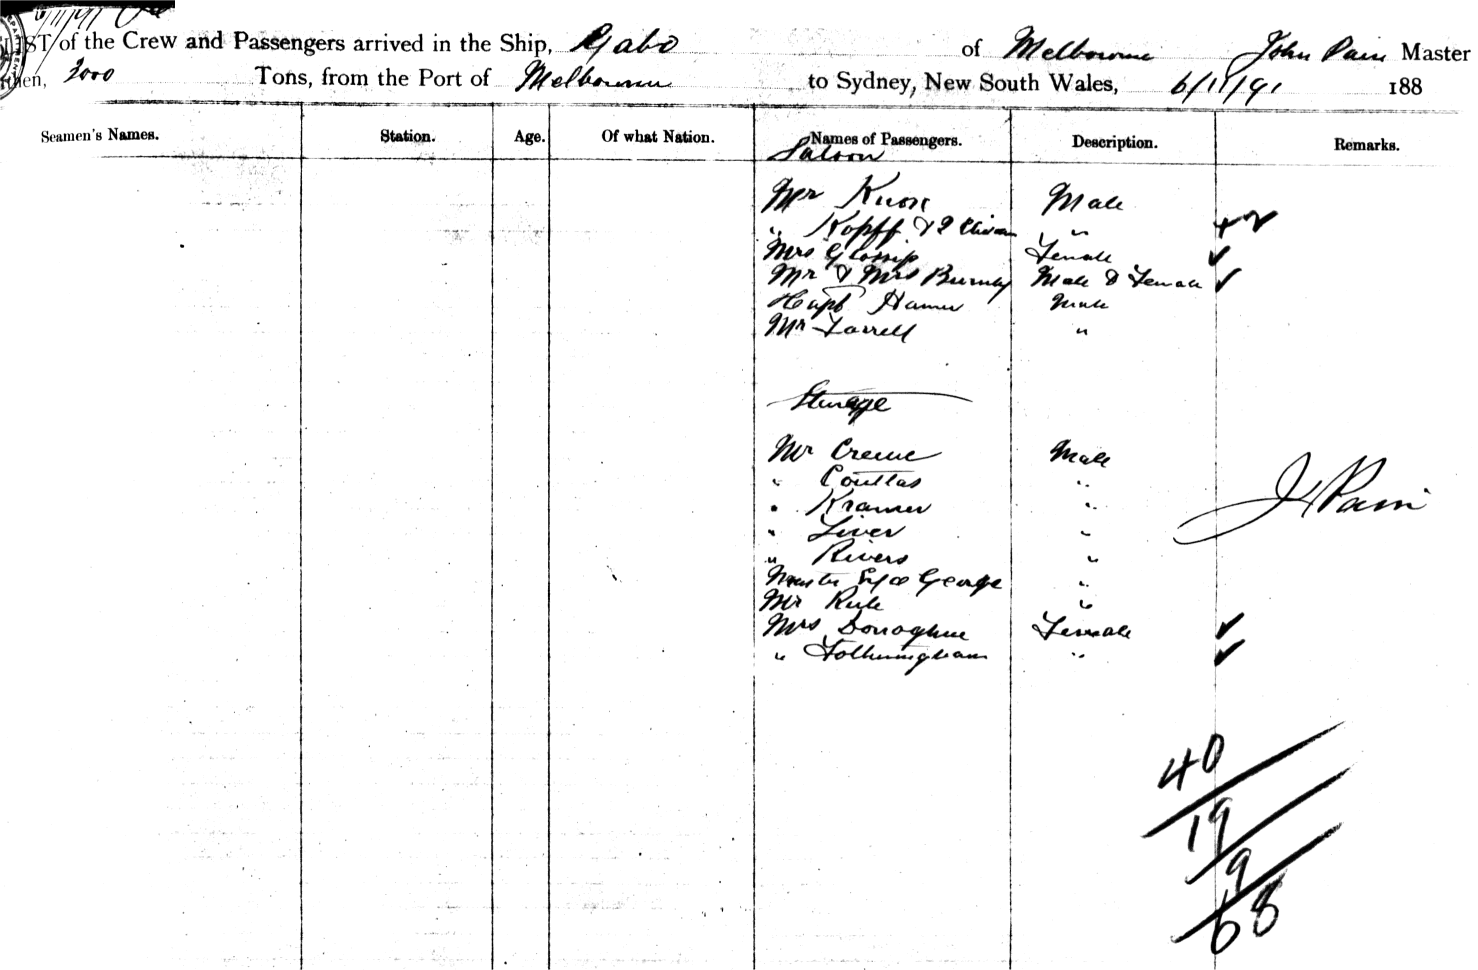 LIST of the Crew and Passengers arrived in the Ship, Gabo of Melbourne John Pain Master
then, 2000 Tons, from the Port of Melbourne to Sydney, New South Wales, 6/11/91 188
Seamen's Names. Station. Age. Of what Nation. Names of Passengers. Description. Remarks.
Saloon
Mr Knox Male
" Kopff & 2 " + 2
Mrs Glossip Female ✓
Mr & Mrs Burnby Male & Female ✓
Hamer Male
Mr Farrell "
Steerage
Mr Creme Male
" Couttas "
" Kramer "
" Liver "
" Rivers "
J Pain
Master George "
Mr Rule "
Mrs Donoghue Female ✓
" Fotheringham " ✓
40
19
9
68